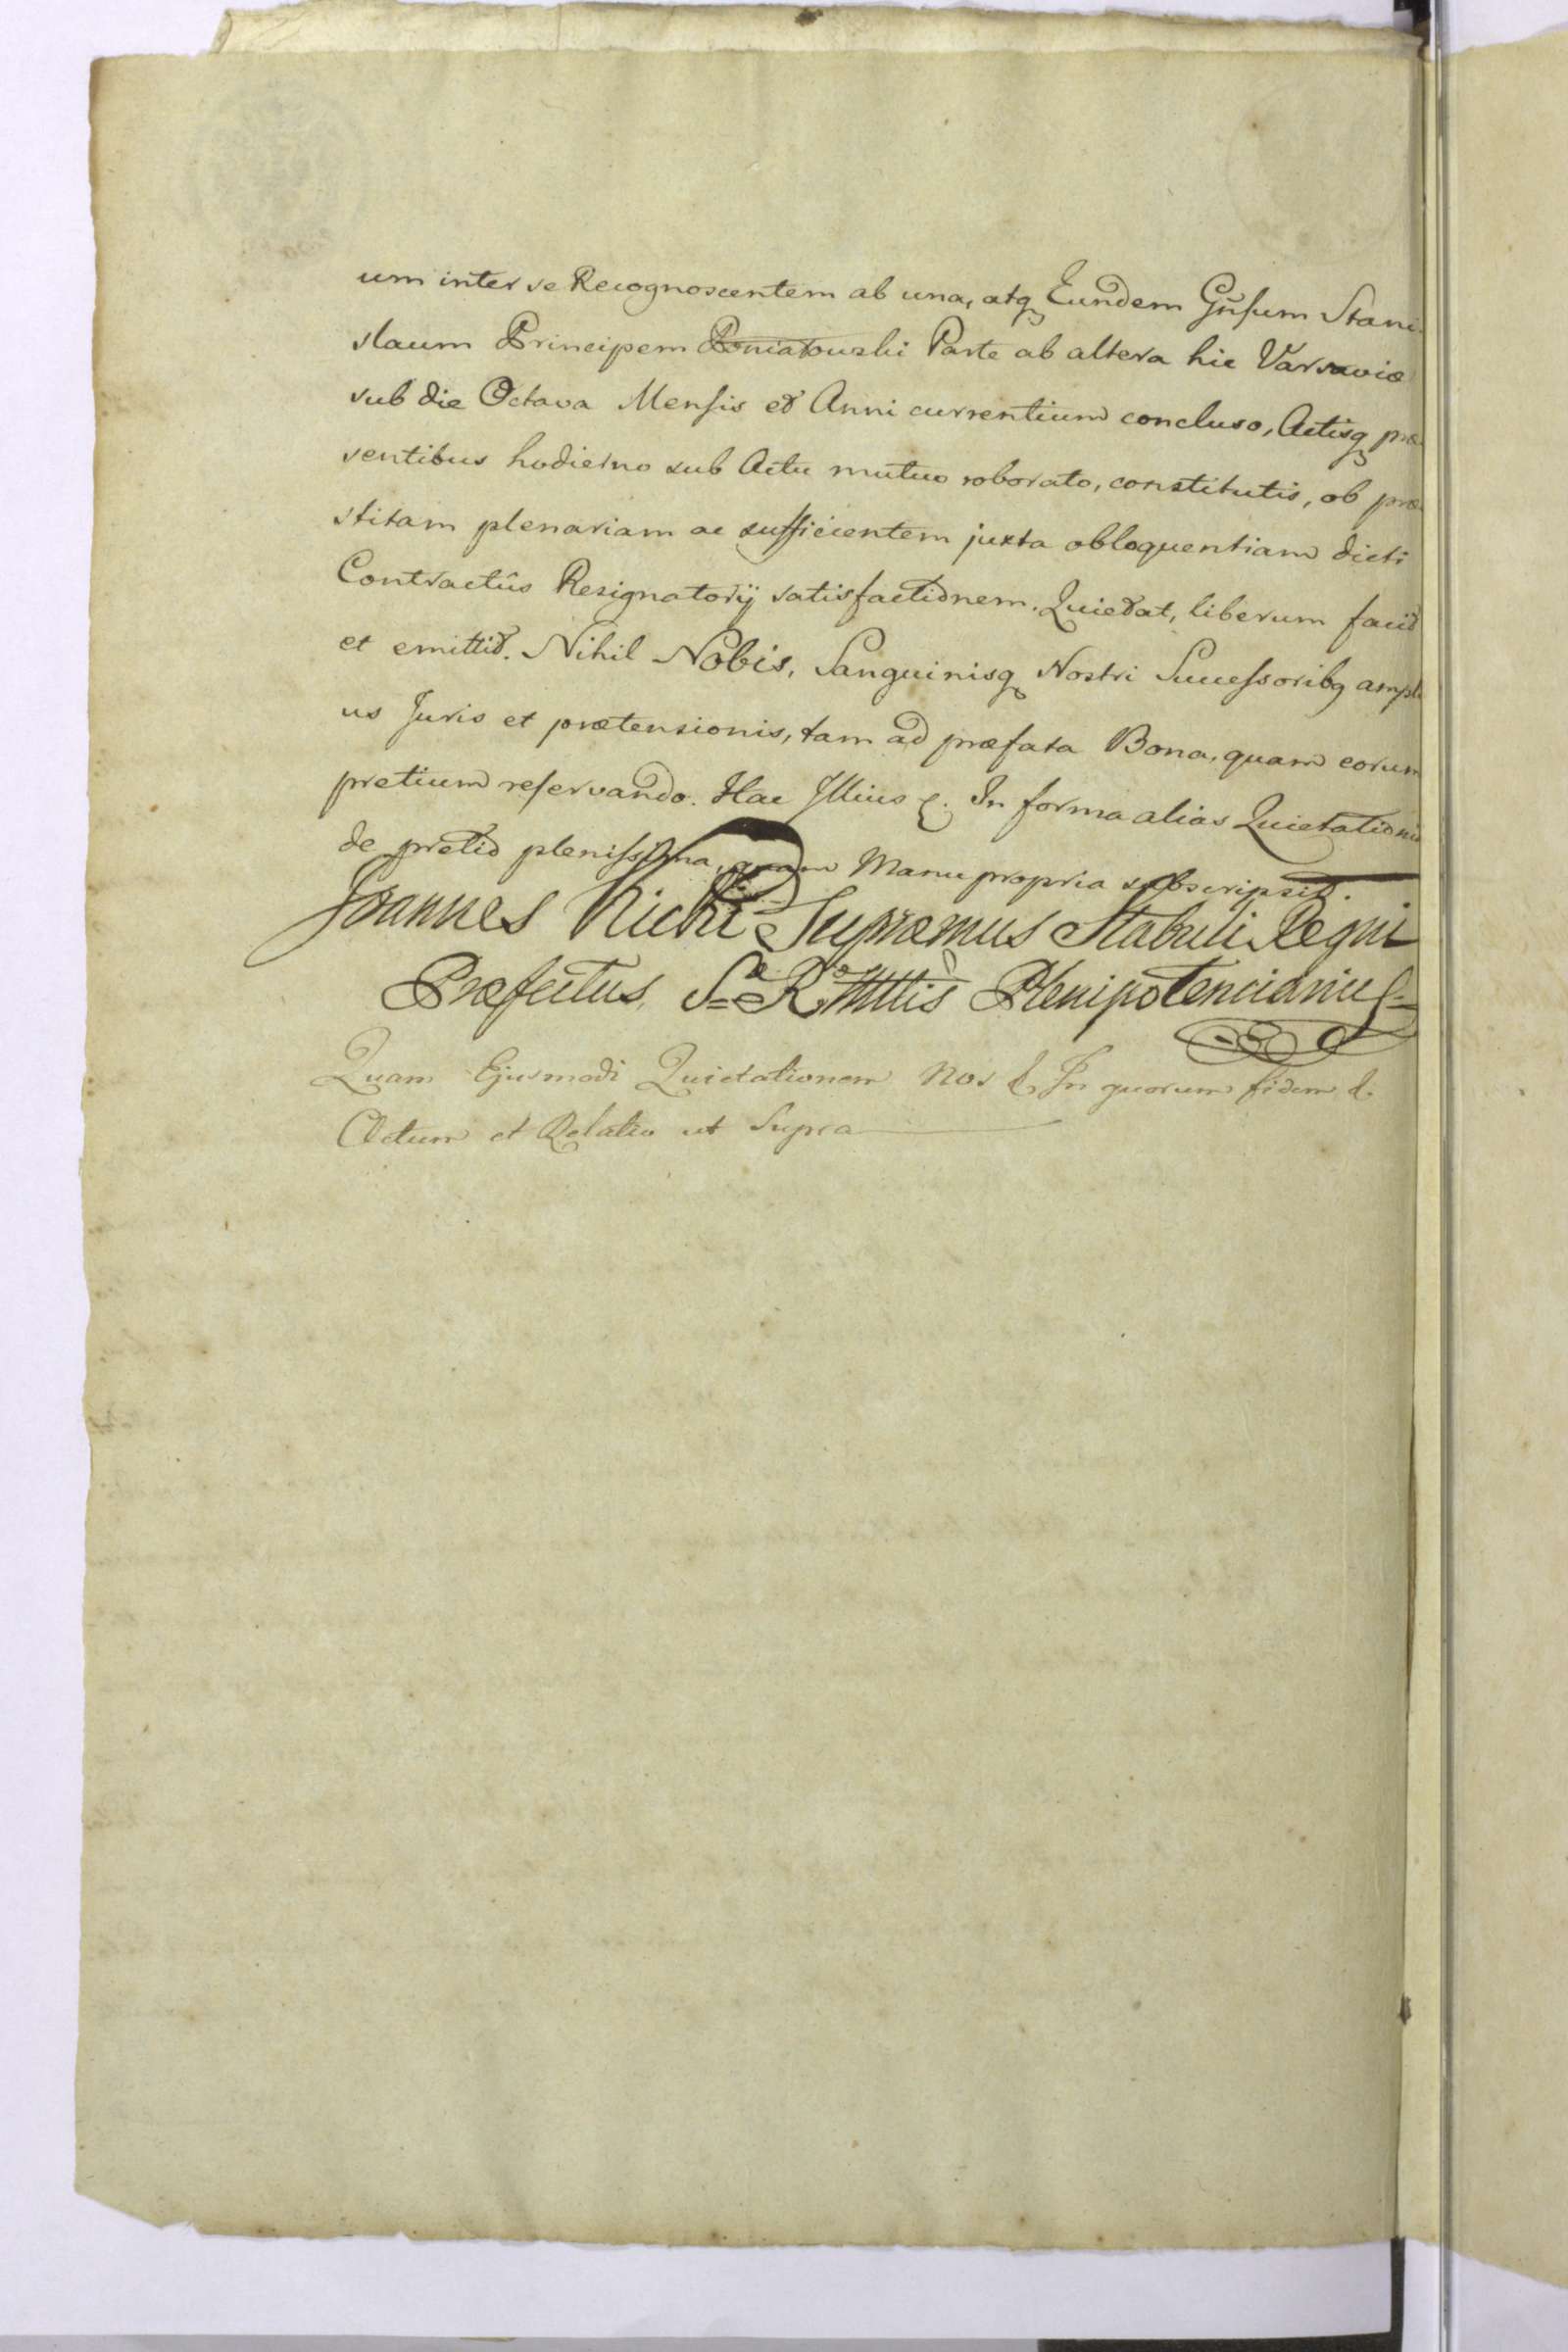 um inter se Recognoscentem ab una, atq Eundem Gñsum Stani
slaum Principem Poniatowski Parte ab altera hic Varsaviæ
sub die Octava Mensis et Anni currentium concluso, Actisq præ
sentibus hodierno sub Actu mutuo roborato, constitutis, ob præ
stitam plenariam ac sufficientem juxta obloquentiam dicti
Contractûs Resignatorij satisfactionem. Quietat, liberum facit
et emittit. Nihil Nobis, Sanguinisq Nostri Successoribq ampli
us Juris et prætensionis, tam ad præfata Bona, quam eorum
pretium reservando. Hac Illius &. In forma alias Quietationis
de pretio plenissima, quam Manu propria subscripsit.
Joannes Kicki Supræmus Stabuli Regni
Præfectus, Plenipotenciarius
Quam Ejusmodi Quietationem Nos & In quorum fidem &.
Actum et Relatio ut Supra